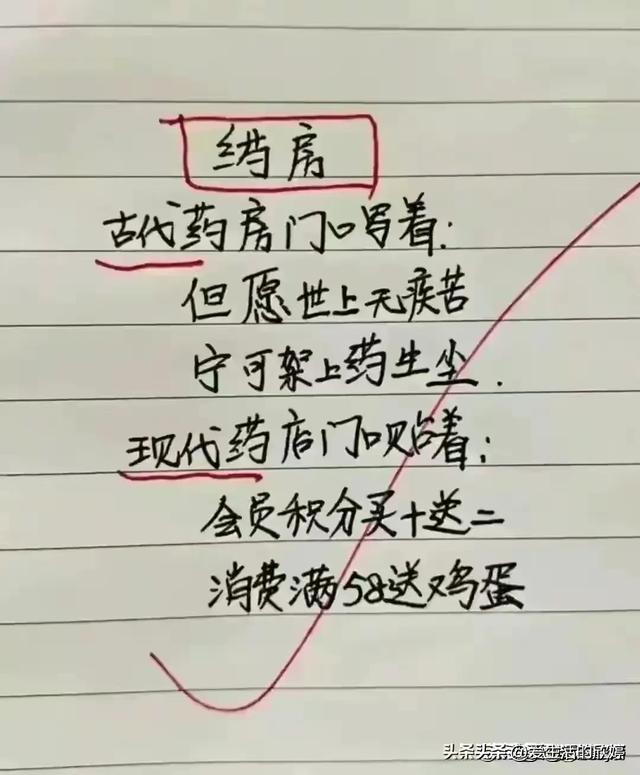 药房
古代药房门口写着:
但愿世上无疾苦
宁可架上药生尘.
现代药店门口贴着:
会员积分买十送二
消费满58送鸡蛋
头条 @爱生活的欣婷